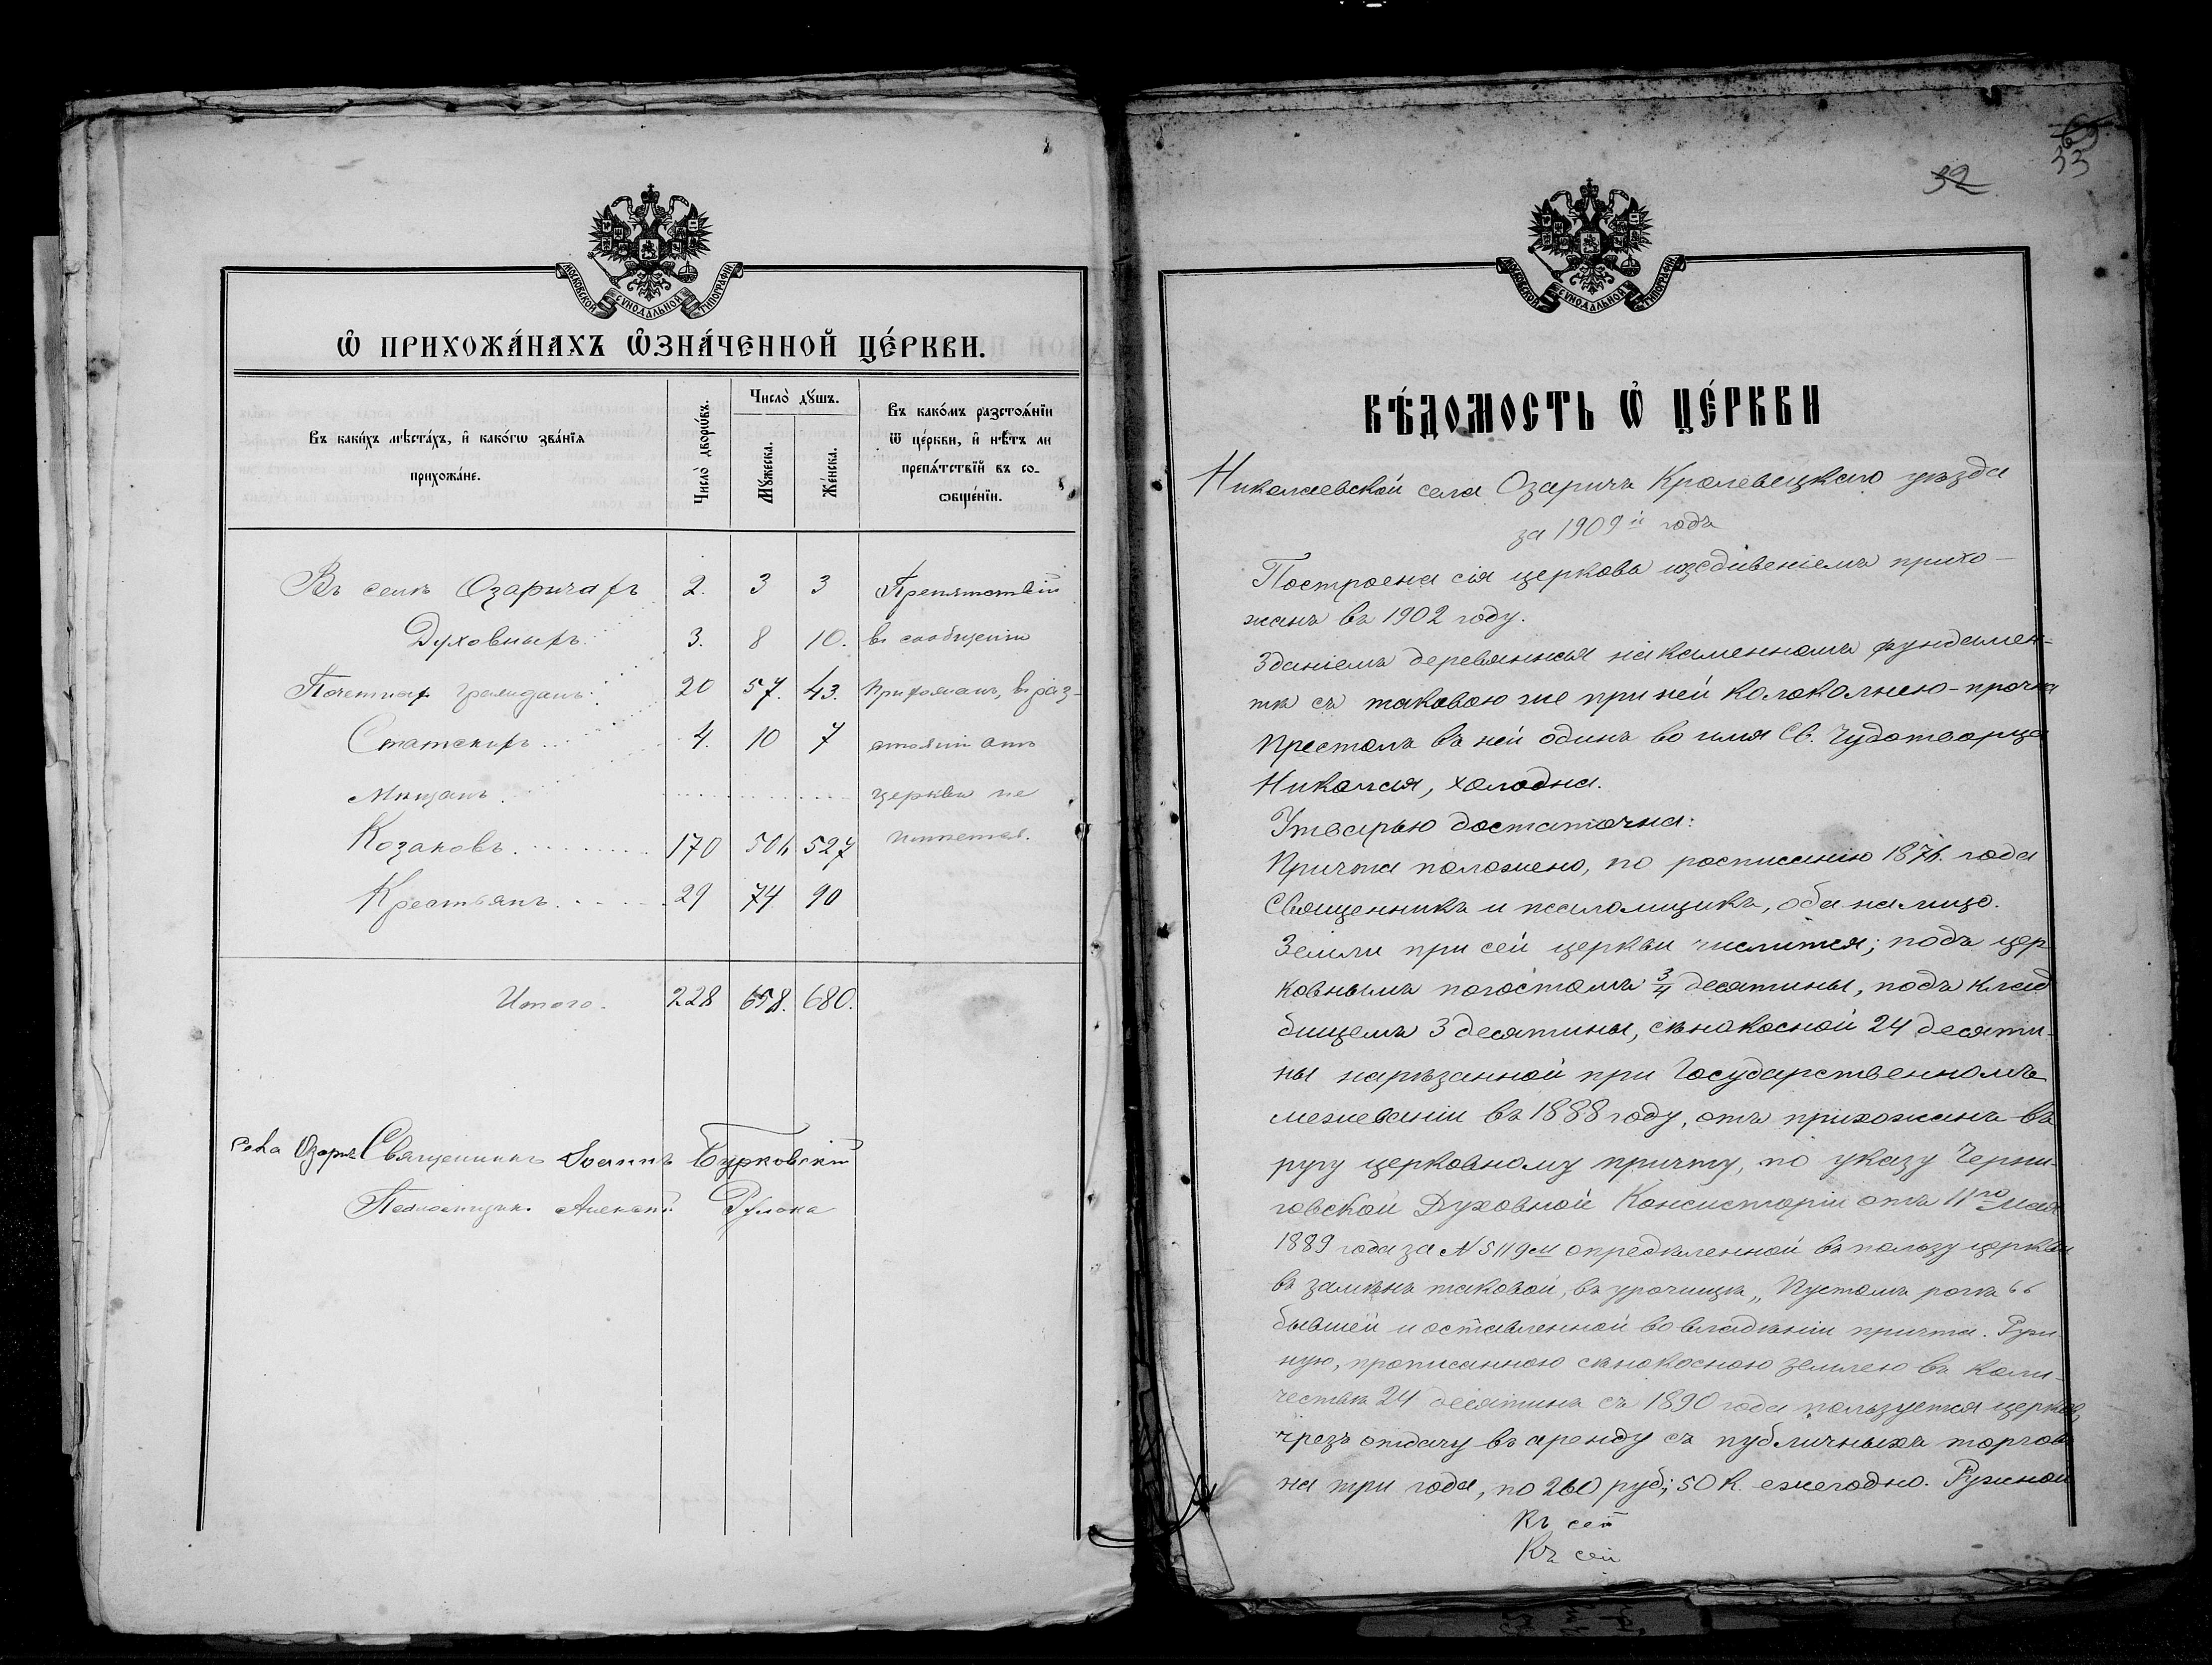 МОСКОВСКОЙ СѴНОДАЛЬНОЙ ТИПОГРАФІИ
Ѽ ПРИХОЖА́НАХЪ Ѽ҆ЗНА́ЧЕННОЙ ЦЕ́РКВИ.
Въ каки́хъ мѣста́хъ, и҆ како́гѡ зва́нїѧ
прихожа́не.
Число̀ дворѡ́въ.
Число̀ дꙋ́шъ.
Мꙋ́жеска.
Же́нска.
Въ како́мъ разстоѧ́нїи
ѿ це́ркви, и҆ нѣ́тъ ли
препѧ́тствїй въ со-
ѻбще́нїи.
Въ селѣ Озаричахъ 2. 3 3 Препятствій
Духовныхъ 3. 8 10. въ сообщеніи
Почетных гражданъ 20 57. 43. прихожанъ, въ раз-
Статскихъ 4. 10 7 стояніи отъ
Мѣщанъ церкви не
Козаковъ 170 506 527 имѣется.
Крестьянъ 29 74 90
Итого. 228 658. 680.
села Озаричъ Священникъ Іоаннъ Бурковскій
Псаломщикъ Алексѣй
32
33
МОСКОВСКОЙ СѴНОДАЛЬНОЙ ТИПОГРАФІИ
ВѢ́ДОМОСТЬ Ѽ ЦЕ́РКВИ
Николаевской села Озаричъ Кролевецкаго уѣзда
за 1909й годъ
Построена сія церковь иждивеніемъ прихо-
жанъ въ 1902 году.
Зданіемъ деревянная на каменномъ фундамен-
тѣ съ таковою же при ней колокольнею - прочна
Престолъ въ ней одинъ во имя Св. Чудотворца
Николая, холодна.
Утварью достаточна:
Причта положено, по росписанію 1876. года
Священникъ и псаломщикъ, оба налицо.
Земли при сей церкви числится; подъ цер
ковнымъ погостомъ 3/4 десятины, подъ клад
бищемъ 3 десятины, сѣнокосной 24 десяти-
ны нарѣзанной при Государственномъ
межеваніи въ 1888 году, отъ прихожанъ въ
ругу церковному причту, по указу Черни-
говской Духовной Консисторіи отъ 11го Мая
1889 года за № 5119м опредѣленной въ пользу церкви
въ замѣнъ таковой, въ урочищѣ „Пустомъ рогѣ“
бывшей и оставленной во владѣніи причта. Руж-
ную, прописанною сѣнокосною землею въ коли-
чествѣ 24 десятинъ съ 1890 года пользуется церковь,
чрезъ отдачу въ аренду съ публичныхъ торговъ
на три года, по 260 руб; 50 к. ежегодно. Ружной
Къ сей
Къ сей